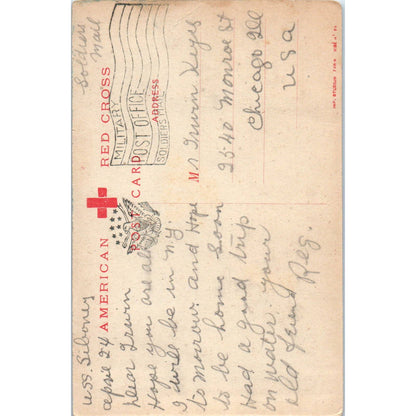 Soldiers
Mail
MILITARY
POST OFFICE
SOLDIERS
AMERICAN RED CROSS
POST CARD
ADDRESS
U.S.S. Siboney
April 24
Dear Irwin
Hope you are all
I will be in N.Y.
to morrow. and Hope
to be home soon
Had a good trip
on water. your
old friend Reg.
Mr Irwin Keys
2540 Monroe St
Chicago Ill
USA